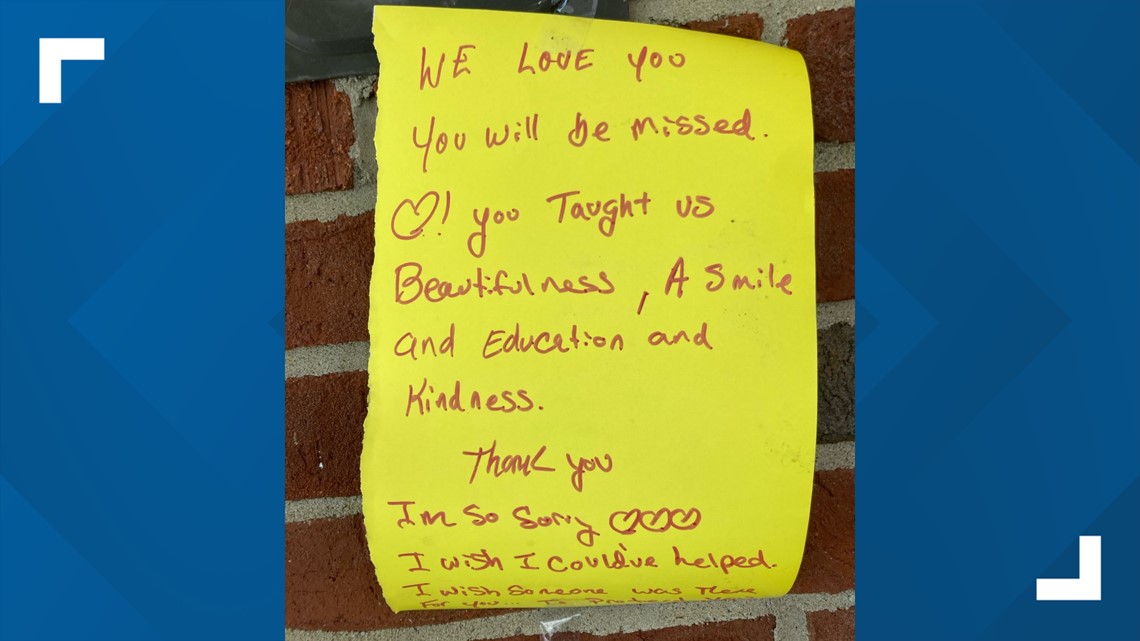 WE LOVE YOU
You will be missed.
♡! you Taught us
Beautifulness, A Smile
and Education and
Kindness.
Thank you
Im so sorry ♡♡♡
I wish I could've helped.
I wish Someone was There
For you... To